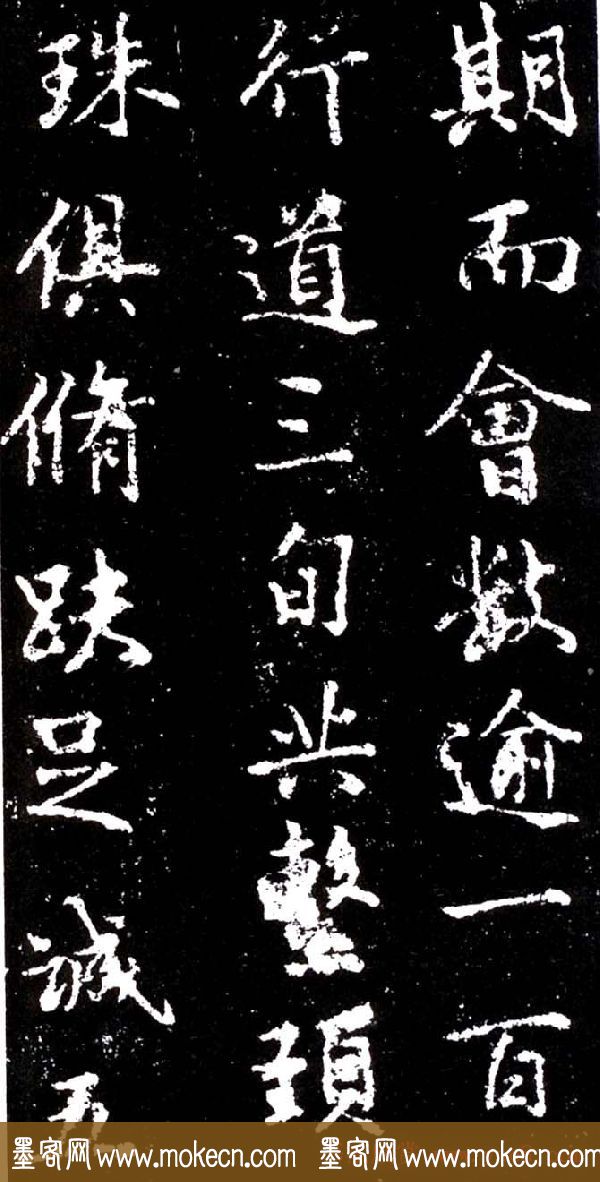 期而會數逾一百
行道三旬共繫頚
珠俱脩趺足誠五
墨客网 www.mokecn.com 墨客网 www.mokecn.com